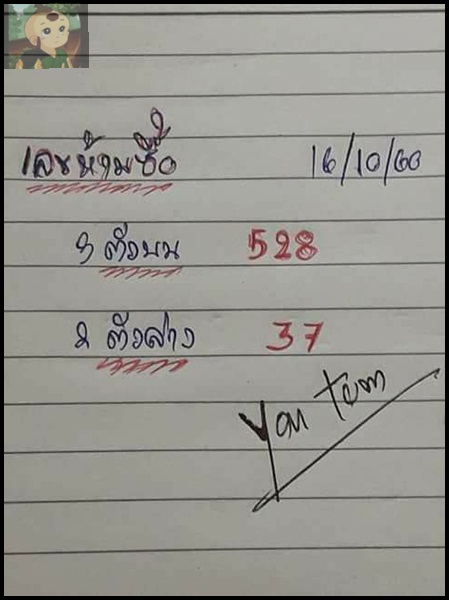 เลขห้ามซื้อ 16/10/60
3 ตัวบน 528
2 ตัวล่าง 37